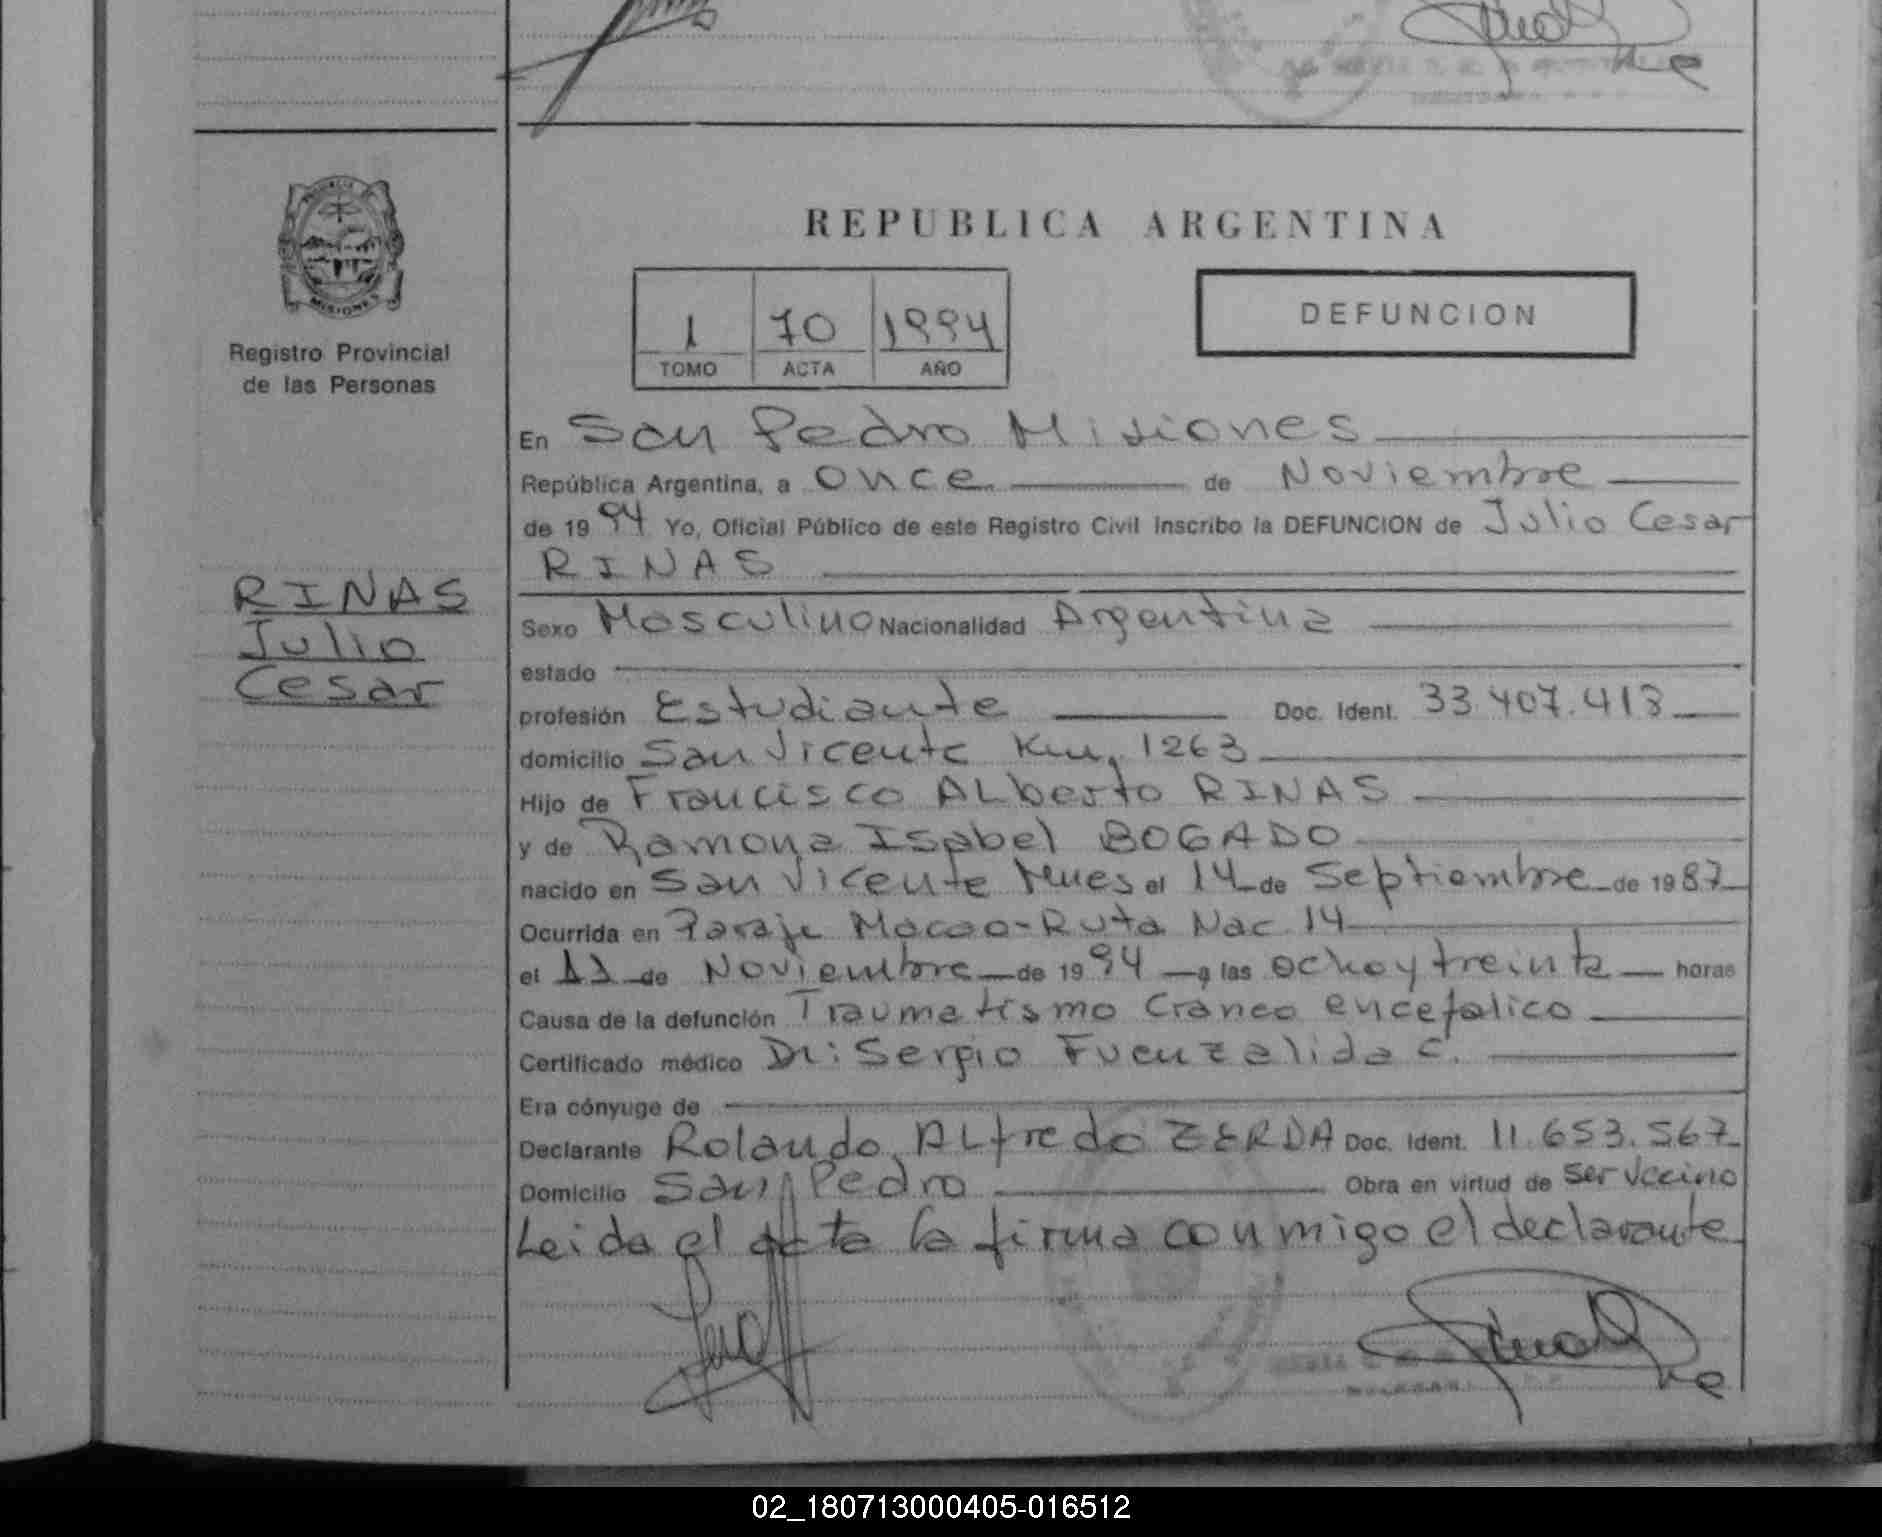 REPUBLICA ARGENTINA
1 70 1994
TOMO ACTA AÑO
DEFUNCION
MISIONES
Registro Provincial
de las Personas
RINAS
Julio
Cesar
En San Pedro Misiones
República Argentina, a once de Noviembre
de 1994 Yo, Oficial Público de este Registro Civil Inscribo la DEFUNCION de Julio Cesar
RINAS
Sexo Masculino Nacionalidad Argentina
estado
profesión Estudiante Doc. Ident. 33.407.413
domicilio San Vicente Km, 1263
Hijo de Francisco ALberto RINAS
y de Ramona Isabel BOGADO
nacido en San Vicente Mnes el 14 de Septiembre de 1987
Ocurrida en Paraje Macao-Ruta Nac 14
el 11 de Noviembre de 1994 a las ocho y treinta horas
Causa de la defunción Traumatismo Craneo encefalico
Certificado médico Dr: Sergio Fuenzalida C.
Era cónyuge de
Declarante Rolando ALfredo ZERDA Doc. Ident. 11.653.567
Domicilio San Pedro Obra en virtud de ser veccino
Leida el acta la firma conmigo el declarante
02_180713000405-016512